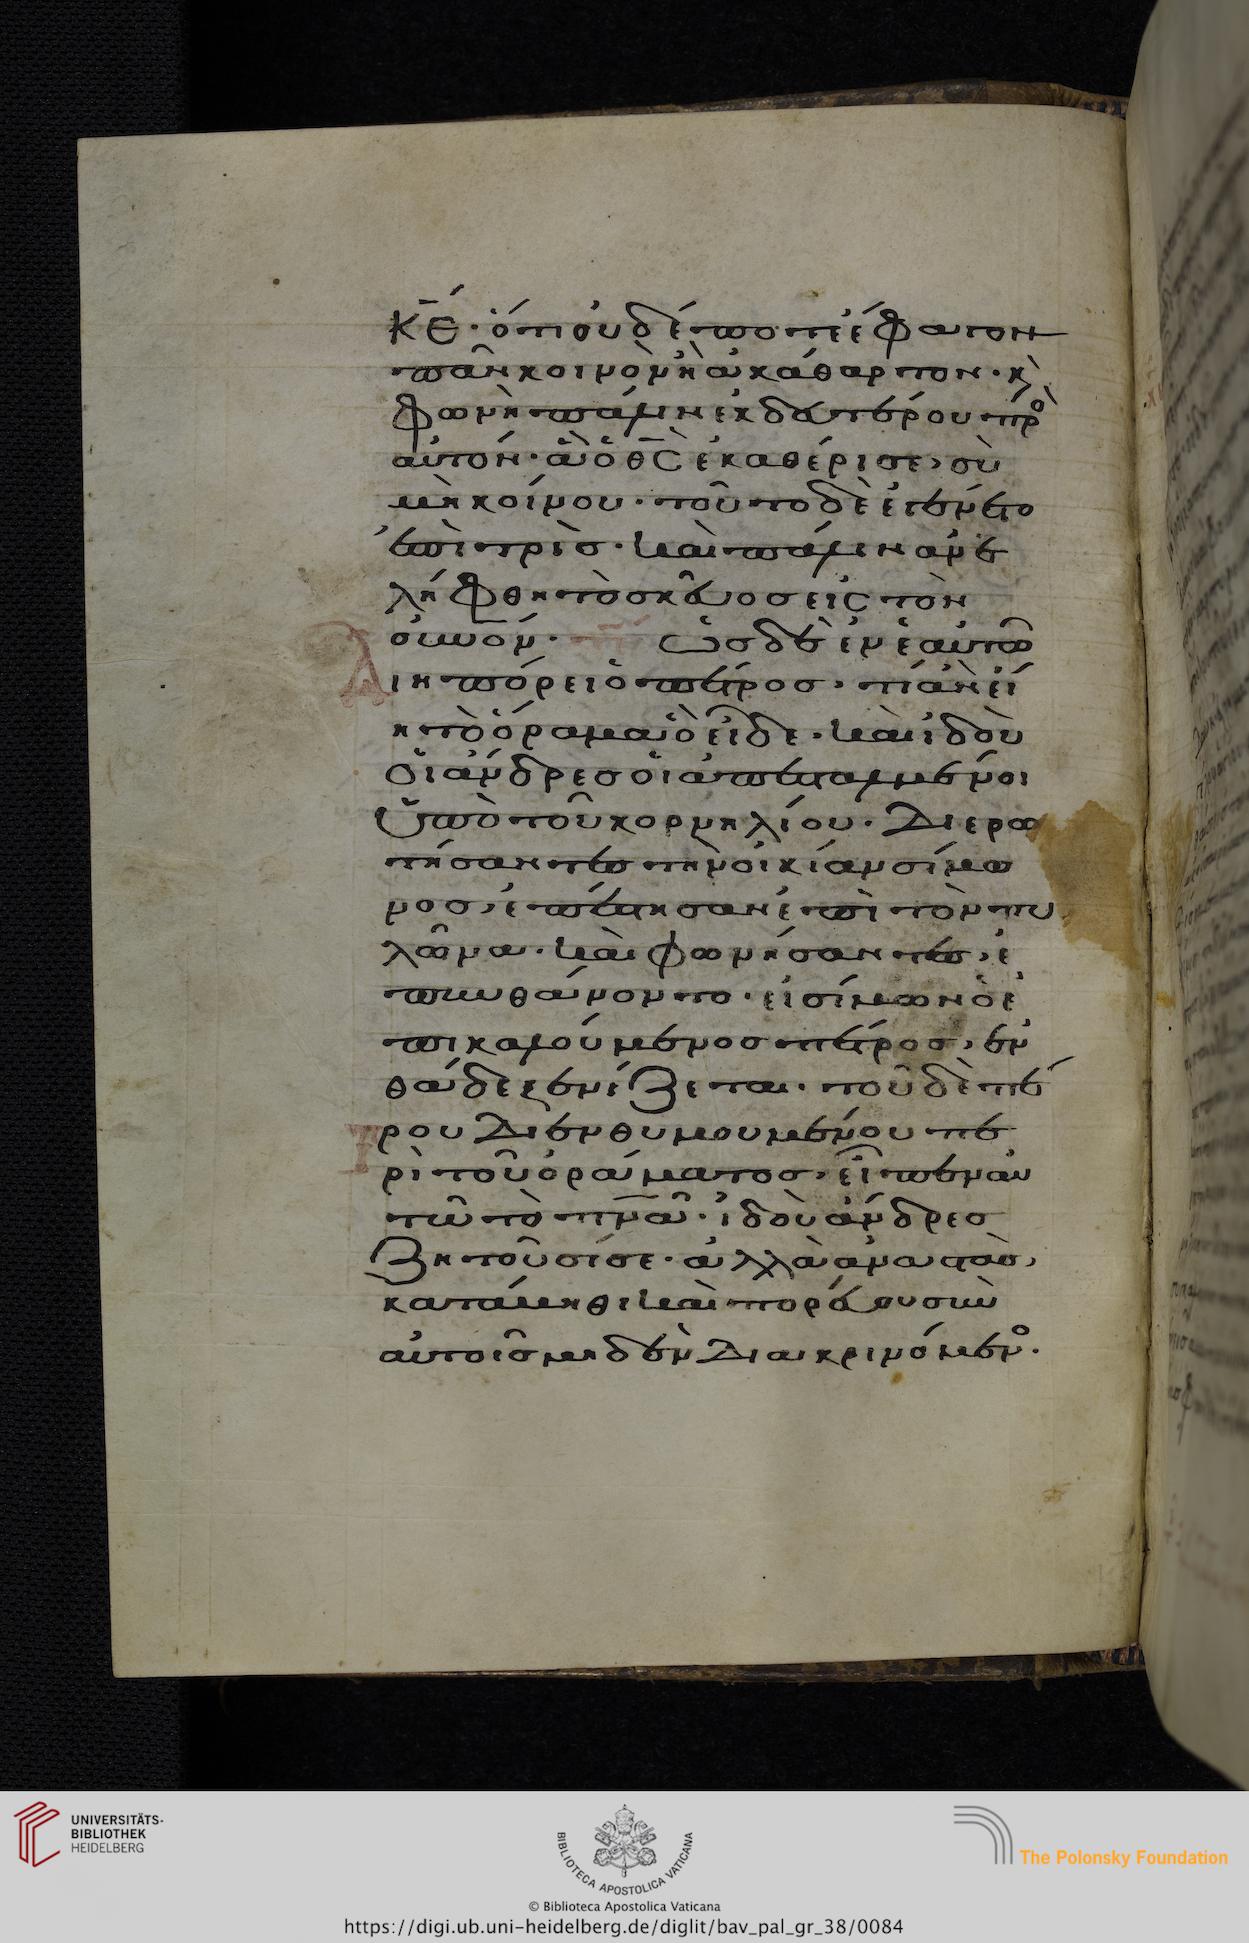 κ̅ε̅· ὅτι οὐδέποτε ἔφαγον
πᾶν κοινὸν ἢ ἀκάθαρτον· κ(αὶ)
φωνὴ πάλιν ἐκ δευτέρου πρ(ὸς)
αὐτόν· ἃ ὁ θ̅ς̅ ἐκαθέρισε, σὺ
μὴ κοίνου· τοῦτο δὲ ἐγένετο
ἐπὶ τρίς· καὶ πάλιν ἀνε
λήφθη τὸ σκεῦος εἰς τὸν
ου̅νο̅ν· Ὡς δὲ ἐν ἑαυτῶ
διηπόρει ὁ πέτρος, τί ἂν εἴ
η τὸ ὅραμα ὃ εἶδε· καὶ ἰδοὺ
οἱ ἄνδρες οἱ ἀπεσταλμένοι
ὑπὸ τοῦ κορνηλίου· διερω
τήσαντες τὴν οἰκίαν σίμω
νος, ἐπέστησαν ἐπὶ τὸν πυ
λῶνα· καὶ φωνήσαντες, ἐ
πυνθάνοντο· εἰ σίμων ὁ ἐ
πικαλούμενος πέτρος, ἐν
θάδε ξενίζεται· τοῦ δὲ πέ
τρου διενθυμουμένου πε
ρὶ τοῦ ὁράματος, εἶπεν αὐ
τῶ τὸ π̅ν̅α̅· ἰδοὺ ἄνδρες
ζητοῦσί σε· ἀλλὰ ἀναστὰς,
κατάβηθι καὶ πορεύου σὺν
αὐτοῖς μηδὲν διακρινόμεν(ος)·
UNIVERSITÄTS-
BIBLIOTHEK
HEIDELBERG
BIBLIOTECA APOSTOLICA VATICANA
The Polonsky Foundation
© Biblioteca Apostolica Vaticana
https://digi.ub.uni-heidelberg.de/diglit/bav_pal_gr_38/0084